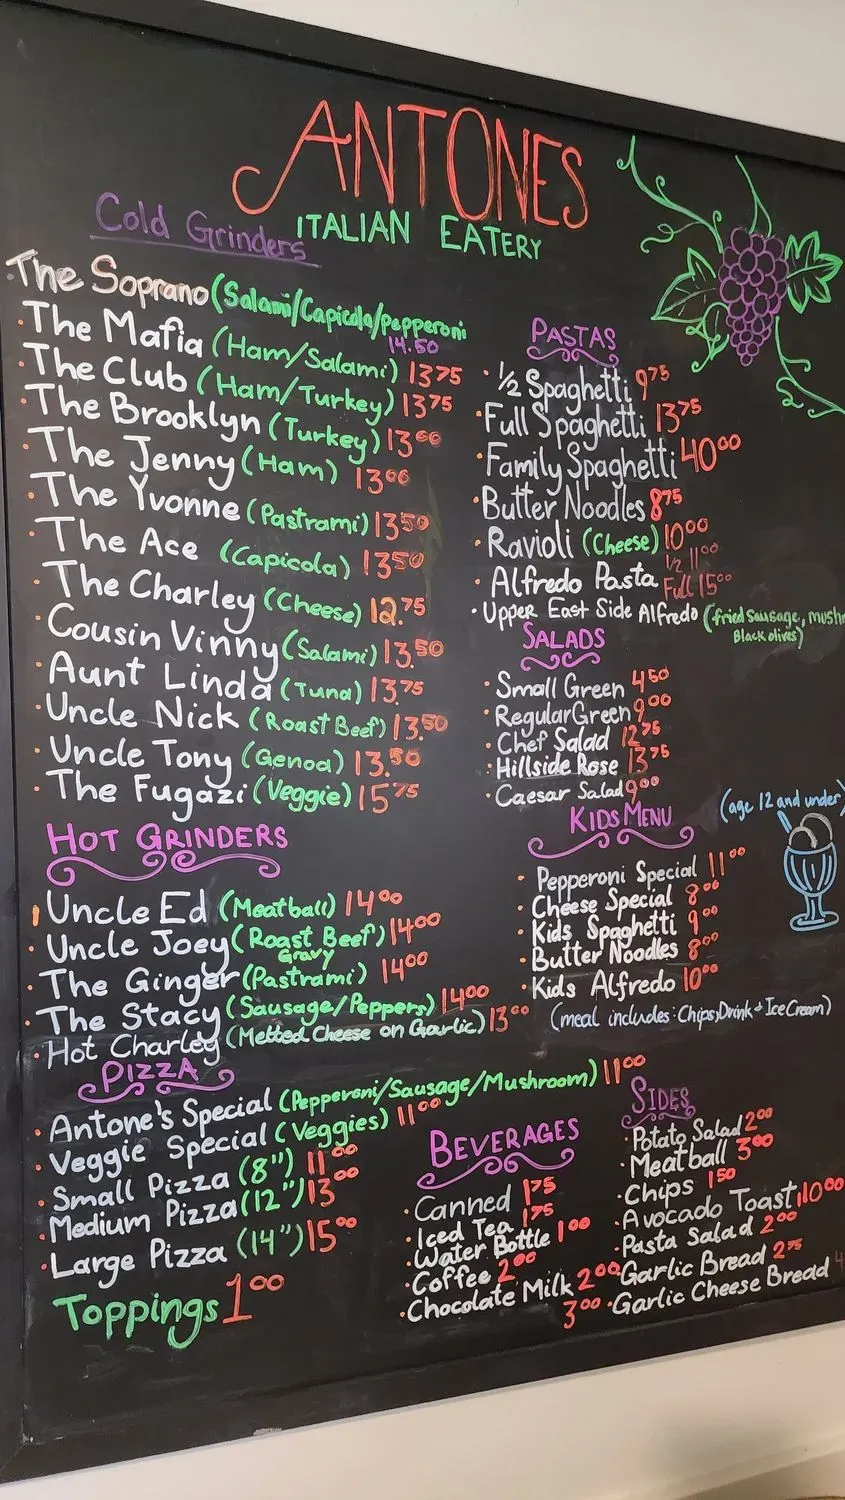 ANTONES
ITALIAN EATERY
Cold Grinders
The Soprano (Salami/Capicola/pepperoni
14.50
• The Mafia (Ham/Salami) 13 75
• The Club (Ham/Turkey) 13 75
• The Brooklyn (Turkey) 13 00
• The Jenny (Ham) 13 00
• The Yvonne (Pastrami) 13 50
• The Ace (Capicola) 13 50
• The Charley (Cheese) 12.75
• Cousin Vinny (Salami) 13.50
• Aunt Linda (Tuna) 13.75
• Uncle Nick (Roast Beef) 13.50
• Uncle Tony (Genoa) 13.50
• The Fugazi (Veggie) 15 75
HOT GRINDERS
Uncle Ed (Meatball) 14 00
• Uncle Joey (Roast Beef) 14 00
Gravy
• The Ginger (Pastrami) 14 00
• The Stacy (Sausage/Peppers) 14 00
• Hot Charley (Melted Cheese on Garlic) 13 00
PIZZA
• Antone's Special (Pepperoni/Sausage/Mushroom) 11 00
• Veggie Special (Veggies) 11 00
• Small Pizza (8") 11 00
• Medium Pizza (12") 13 00
• Large Pizza (14") 15 00
Toppings 1 00
PASTAS
• 1/2 Spaghetti 9 75
• Full Spaghetti 13 75
• Family Spaghetti 40 00
• Butter Noodles 8 75
• Ravioli (Cheese) 10 00
1/2 11 00
• Alfredo Pasta Full 15 00
• Upper East Side Alfredo (fried sausage,
Black olives)
SALADS
• Small Green 4 50
• Regular Green 9 00
• Chef Salad 12 75
• Hillside Rose 13 75
• Caesar Salad 9 00
KIDS MENU
(age 12 and under)
• Pepperoni Special 11 00
• Cheese Special 8 00
• Kids Spaghetti 9 00
• Butter Noodles 8 00
• Kids Alfredo 10 00
(meal includes: Chips, Drink + Ice Cream)
BEVERAGES
• Canned 1 75
• Iced Tea 1 75
• Water Bottle 1 00
• Coffee 2 00
• Chocolate Milk 2 00
3 00
SIDES
• Potato Salad 2 00
• Meatball 3 00
• Chips 1 50
• Avocado Toast 10 00
• Pasta Salad 2 00
• Garlic Bread 2 75
• Garlic Cheese Bread